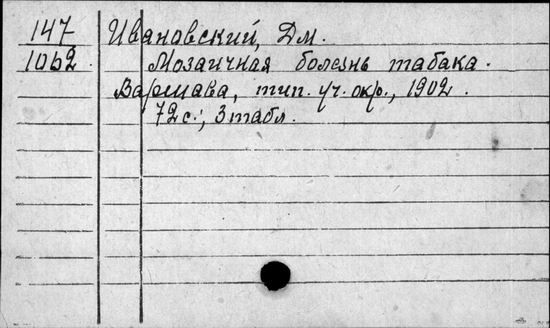 147 Ивановский, Дм.
1062. Мозаичная болезнь табака.
Варшава, тип. уч. окр., 1902.
72 с.; 3 табл.